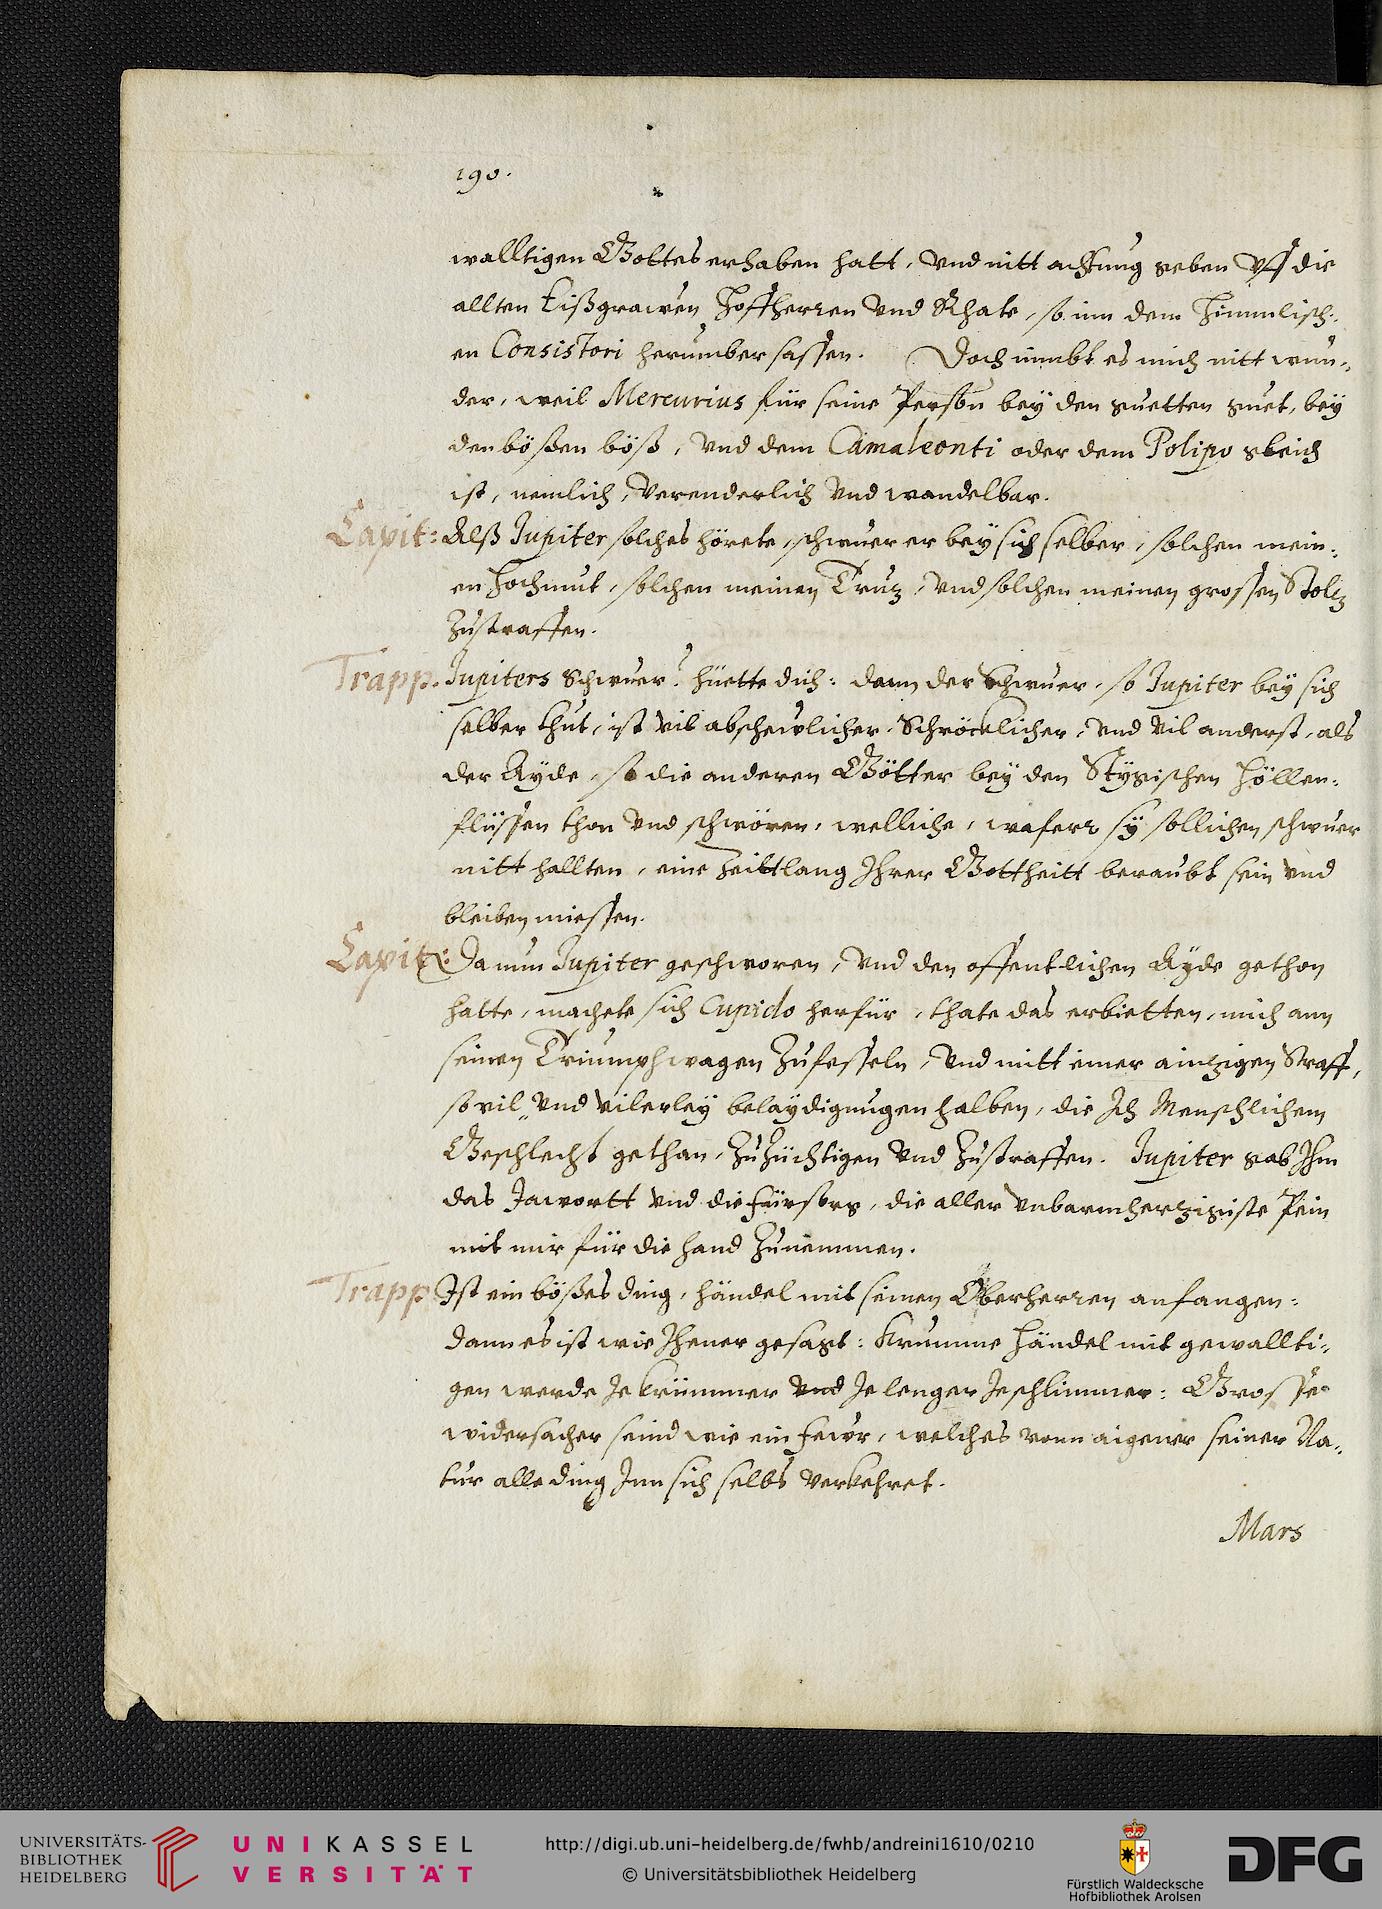 190.
walltigen Gottes erhaben hatt, vnd nitt achtung geben vff die
allten Eißgrawen Hoffherren vnd Rhate, so inn dem Himmlisch-
en Consistori herumber sassen. Doch nimbt es mich nitt wun-
der, weil Mercurius für seine Person bey den guetten guet, bey
den bößen böß, vnd dem Camaleonti oder dem Polipo gleich
ist, nemlich, verenderlich vnd wandelbar.
Capit: Alß Jupiter solches hörete, schwuer er bey sich selber, solchen mein-
en Hochmut, solchen meinen Truz, vnd solchen meinen grossen Stolz
Zustraffen.
Trapp. Jupiters Schwuer? hüette dich: dann der Schwuer, so Jupiter bey sich
selber thut, ist vil abschewlicher, Schröcklicher, vnd vil anderst, als
der Ayde, so die anderen Götter bey den Stygischen Höllen-
flüssen thon vnd schwören, welliche, waferr sy sollichen schwuer
nitt hallten, eine Zeittlang Ihrer Gottheitt beraubt sein vnd
bleiben miessen.
Capit: Da nun Jupiter geschworen, vnd den offentlichen Ayde gethon
hatte, machete sich Cupido herfür, thate das erbietten, mich ann
seinen Triumphwagen Zufesseln, vnd mitt einer aintzigen Straff,
so vil vnd vilerley belaydigungen halben, die Ich Menschlichem
Geschlecht gethan, Zuzüchtigen vnd Zustraffen. Jupiter gab Ihm
das Jawortt vnd die fürsorg, die aller vnbarmhertzigiste Pein
mit mir für die hand Zunemmen.
Trapp Ist ein bößes ding, händel mit seinen Oberherren anfangen:
dann es ist wie Ihener gesagt: Krumme Händel mit gewallti-
gen werde Je krümmer vnd Je lenger Je schlimmer: Grosse
widersacher seind wie ein fewr, welches vonn aigener seiner Na-
tur alle ding Inn sich selbs verkehret.
Mars
UNIVERSITÄTS-
BIBLIOTHEK
HEIDELBERG
UNIKASSEL
VERSITÄT
http://digi.ub.uni-heidelberg.de/fwhb/andreini1610/0210
© Universitätsbibliothek Heidelberg
Fürstlich Waldecksche
Hofbibliothek Arolsen
DFG